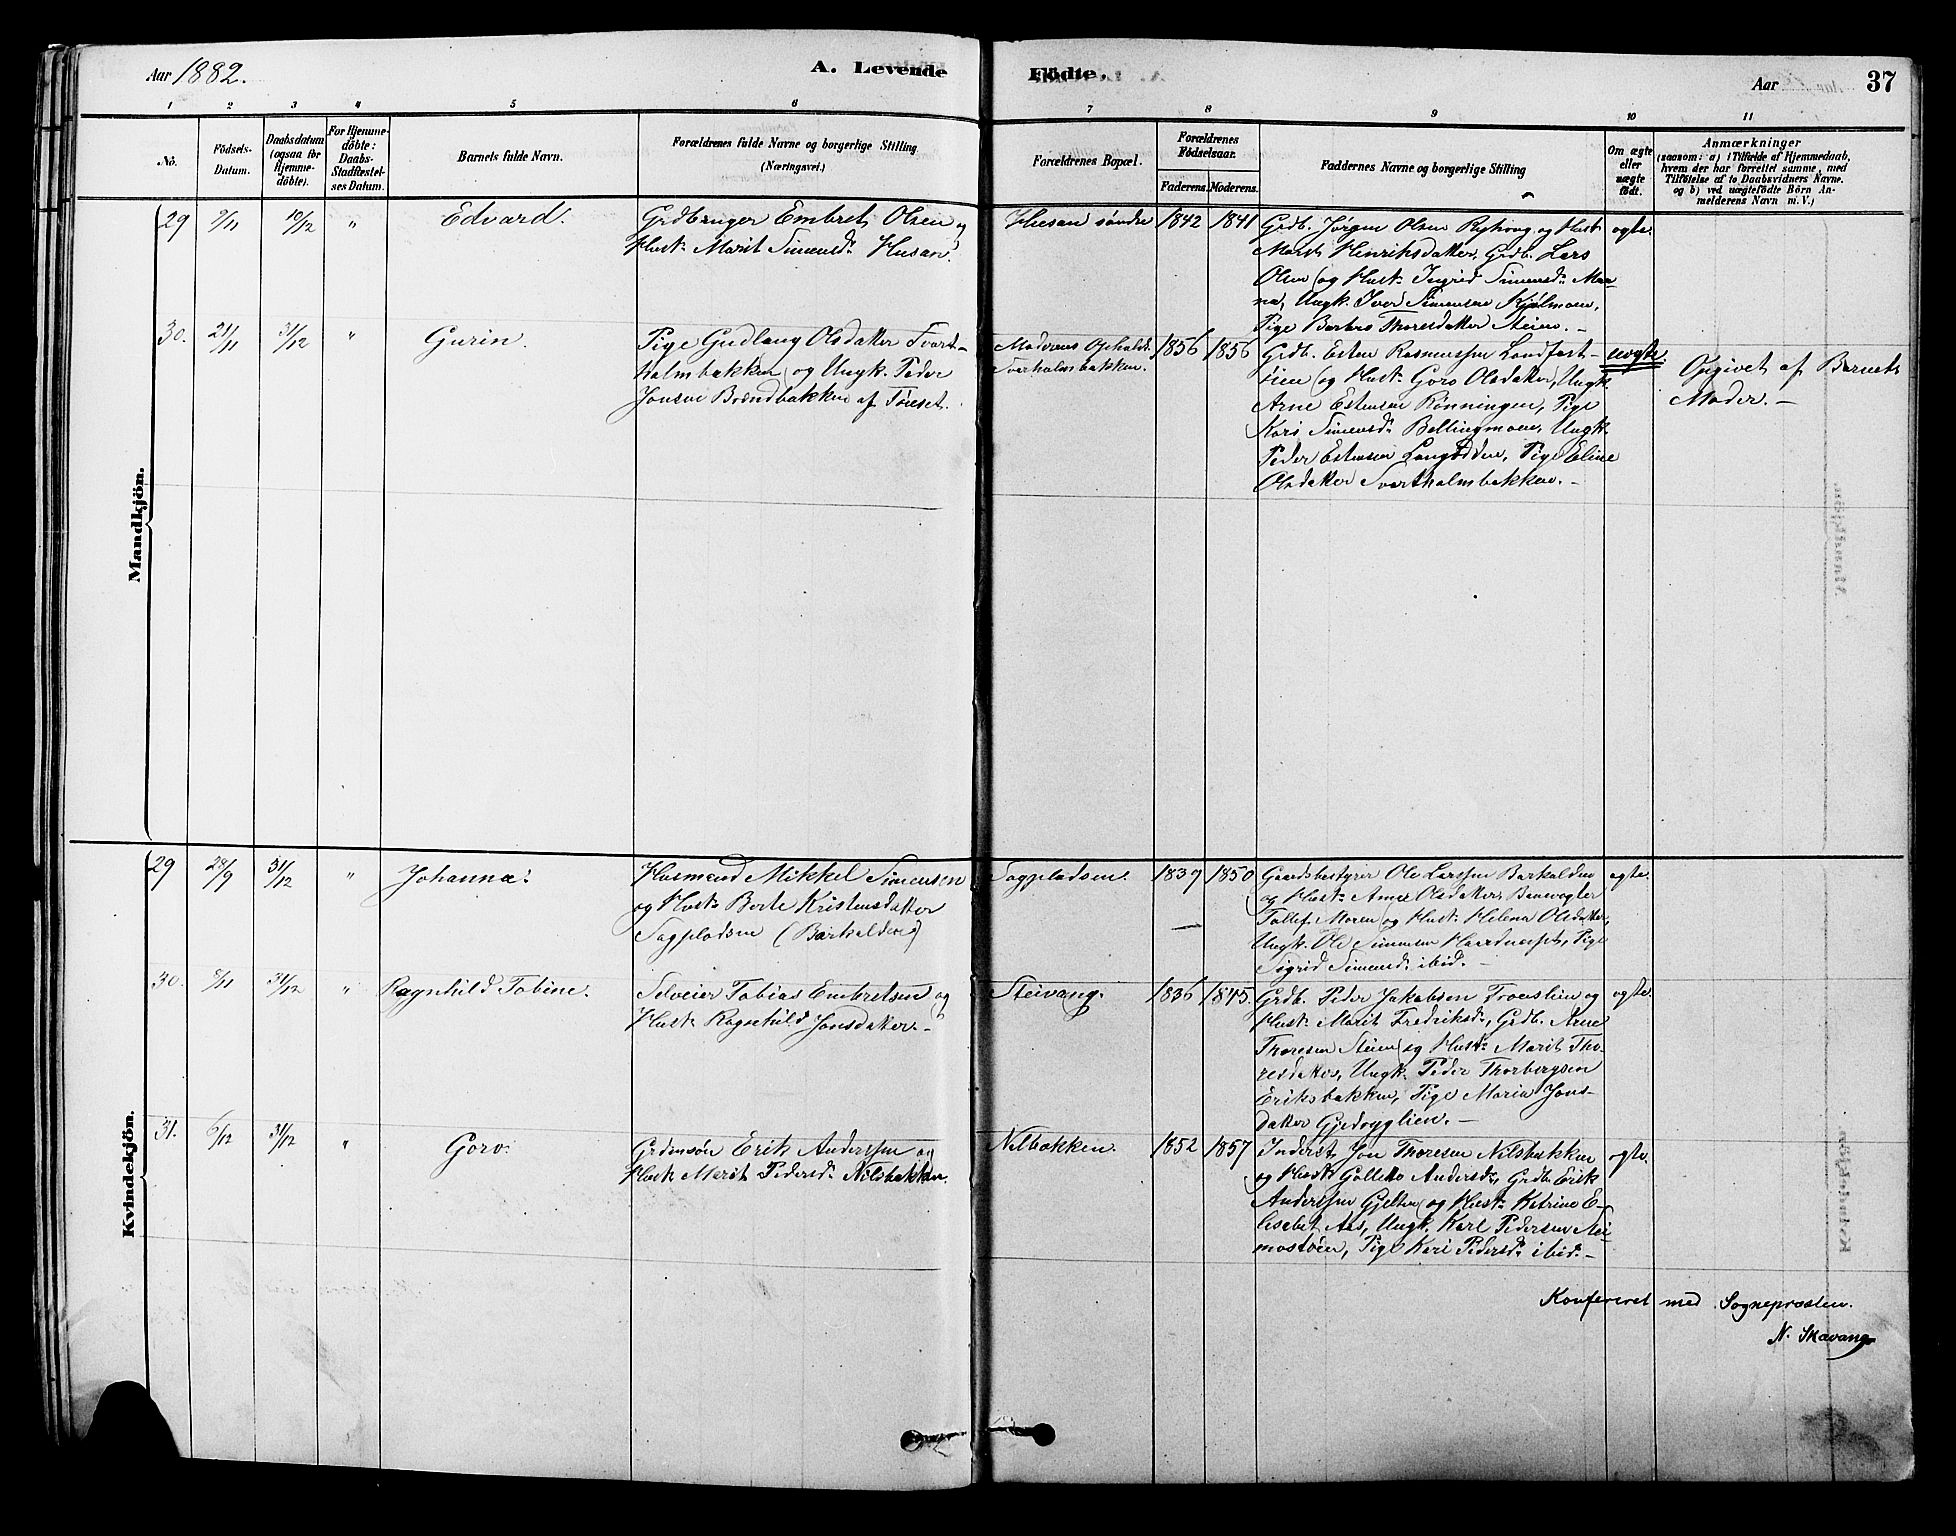 Aar 1882.
A. Levende
Födte,
Aar
37
1 2 3 4 5 6
7 8 9 10 11
No.
Födsels-
Datum.
Daabsdatum
(ogsaa for
Hjemme-
döbte).
For Hjemme-
döbte:
Daabs-
Stadfæstel-
ses Datum.
Barnets fulde Navn.
Forældrenes fulde Navne og borgerlige Stilling
(Næringsvei.)
Forældrenes Bopæl.
Forældrenes
Födselsaar.
Faderens. Moderens.
Faddernes Navne og borgerlige Stilling
Om ægte
eller
uægte
födt.
Anmærkninger
(saasom: a) i Tilfælde af Hjemmedaab,
hvem der har forrettet samme, med
Tilföielse af to Daabsvidners Navne.
og b) ved uægtefödte Börn An-
melderens Navn m. V.)
Mandkjön.
29 9/11 10/12 " Edvard.
Grdbruger Embret Olsen og
Hust. Marit Simensd. Husan.
Husan søndre 1842 1841
Grdb. Jørgen Olsen Ryhoug og Hust
Marit Henriksdatter, Grdb. Lars
Olsen og Hust. Ingrid Simensd. Mar-
na, Ungk. Iver Simensen Kjølmoen,
Pige Barbro Thoresdatter Steien. -
ægte.
30. 21/11 31/12 " Gurin.
Pige Gudlaug Olsdatter Svart-
halmbakken og Ungk. Peder
Jonsen Brændbakken af Tønset.
Moderens Opholdst.
Sverholmbakken. 1856 1856
Grdb. Esten Rasmussen Landfast-
øien og Hust. Goro Olsdatter, Ungk
Arne Estensen Rønningen, Pige
Kari Simensd. Bellingmoen, Ungk.
Peder Estensen Langodden, Pige Eline
Olsdatter Svartholmbakken. -
uægte
Opgivet af Barnets
Moder. -
Kvindekjön.
29 28/9 31/12 " Johanna.
Husmand Mikkel Simensen
og Hust. Berte Kristensdatter
Sagpladsen (Barkalden)
Sagpladsen. 1837 1850
Gaardsbestyrer Ole Larssen Barkalden
og Hust. Anne Olsdatter, Banevogter
Tollef Moren og Hust. Helena Olsdatter,
Ungk. Ole Simensen Haardnæset, Pige
Sigrid Simensd. ibid. -
ægte.
30. 8/11 31/12 " Ragnhild Tobine.
Selveier Tobias Embretsen og
Hust. Ragnhild Jonsdatter. -
Steivang. 1836 1845.
Grdb. Peder Jakobsen Tronslien og
Hust. Marit Fredriksd., Grdb. Arne
Thoresen Steien og Hust. Marit Tho-
resdatter, Ungk. Peder Thorbergsen
Eriksbakken, Pige Maria Jons-
datter Gjedryglien. -
ægte.
31. 6/12 31/12 " Goro.
Grdmsøn Erik Anderssen og
Hust. Marit Pedersd. Nilsbakken.
Nilbakken. 1852 1857
Inderst Jon Thoresen Nilsbakken
og Hust. Gollette Andersd., Grdb. Erik
Anderssen Gjelten og Hust. Katrine E-
lisabet Aas, Ungk. Karl Pedersen Nei-
mostøen, Pige Kari Pedersd. ibid. -
ægte.
Konfereret med Sognepræsten.
N. Skavang